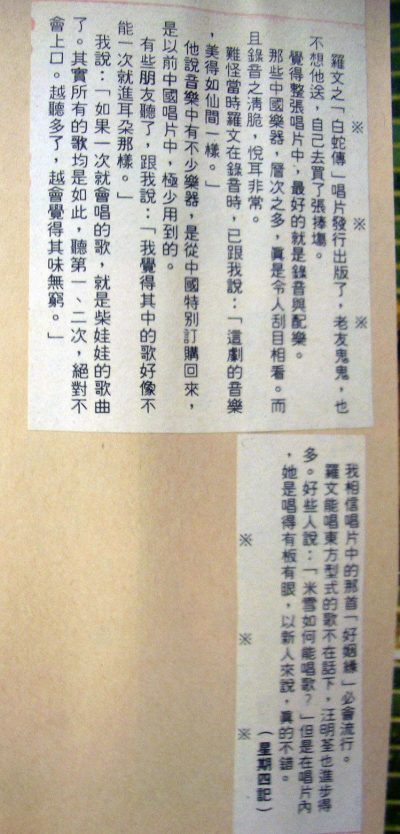 ※ ※ ※
羅文之「白蛇傳」唱片發行出版了，老友鬼鬼，也
不想他送，自己去買了張捧塲。
覺得整張唱片中，最好的就是錄音與配樂。
那些中國樂器，層次之多，眞是令人刮目相看。而
且錄音之淸脆，悅耳非常。
難怪當時羅文在錄音時，已跟我說：「這劇的音樂
，美得如仙間一樣。」
他說音樂中有不少樂器，是從中國特別訂購回來，
是以前中國唱片中，極少用到的。
有些朋友聽了，跟我說：「我覺得其中的歌好像不
能一次就進耳朶那樣。」
我說：「如果一次就會唱的歌，就是柴娃娃的歌曲
了。其實所有的歌均是如此，聽第一、二次，絕對不
會上口。越聽多了，越會覺得其味無窮。」
我相信唱片中的那首「好姻緣」必會流行。
羅文能唱東方型式的歌不在話下，汪明荃也進步得
多。好些人說：「米雪如何能唱歌？」但是在唱片內
，她是唱得有板有眼，以新人來說，眞的不錯。
※ ※ ※
（星期四記）